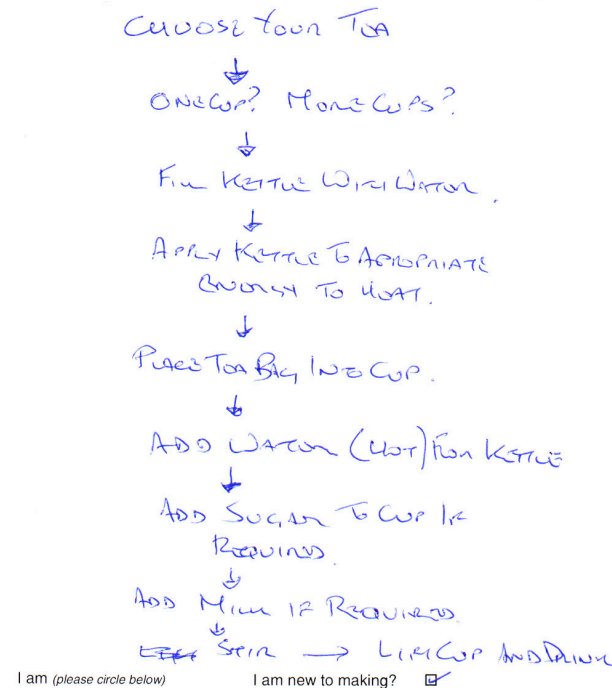 CHOOSE YOUR TEA
ONE CUP? MORE CUPS?
FILL KETTLE WITH WATER.
APPLY KETTLE TO APROPRIATE
ENERGY TO HEAT.
PLACE TEA BAG INTO CUP.
ADD WATER (HOT) FROM KETTLE
ADD SUGAR TO CUP IF
REQUIRED
ADD MILK IF REQUIRED
STIR → LIFT CUP AND DRINK
I am (please circle below) I am new to making?